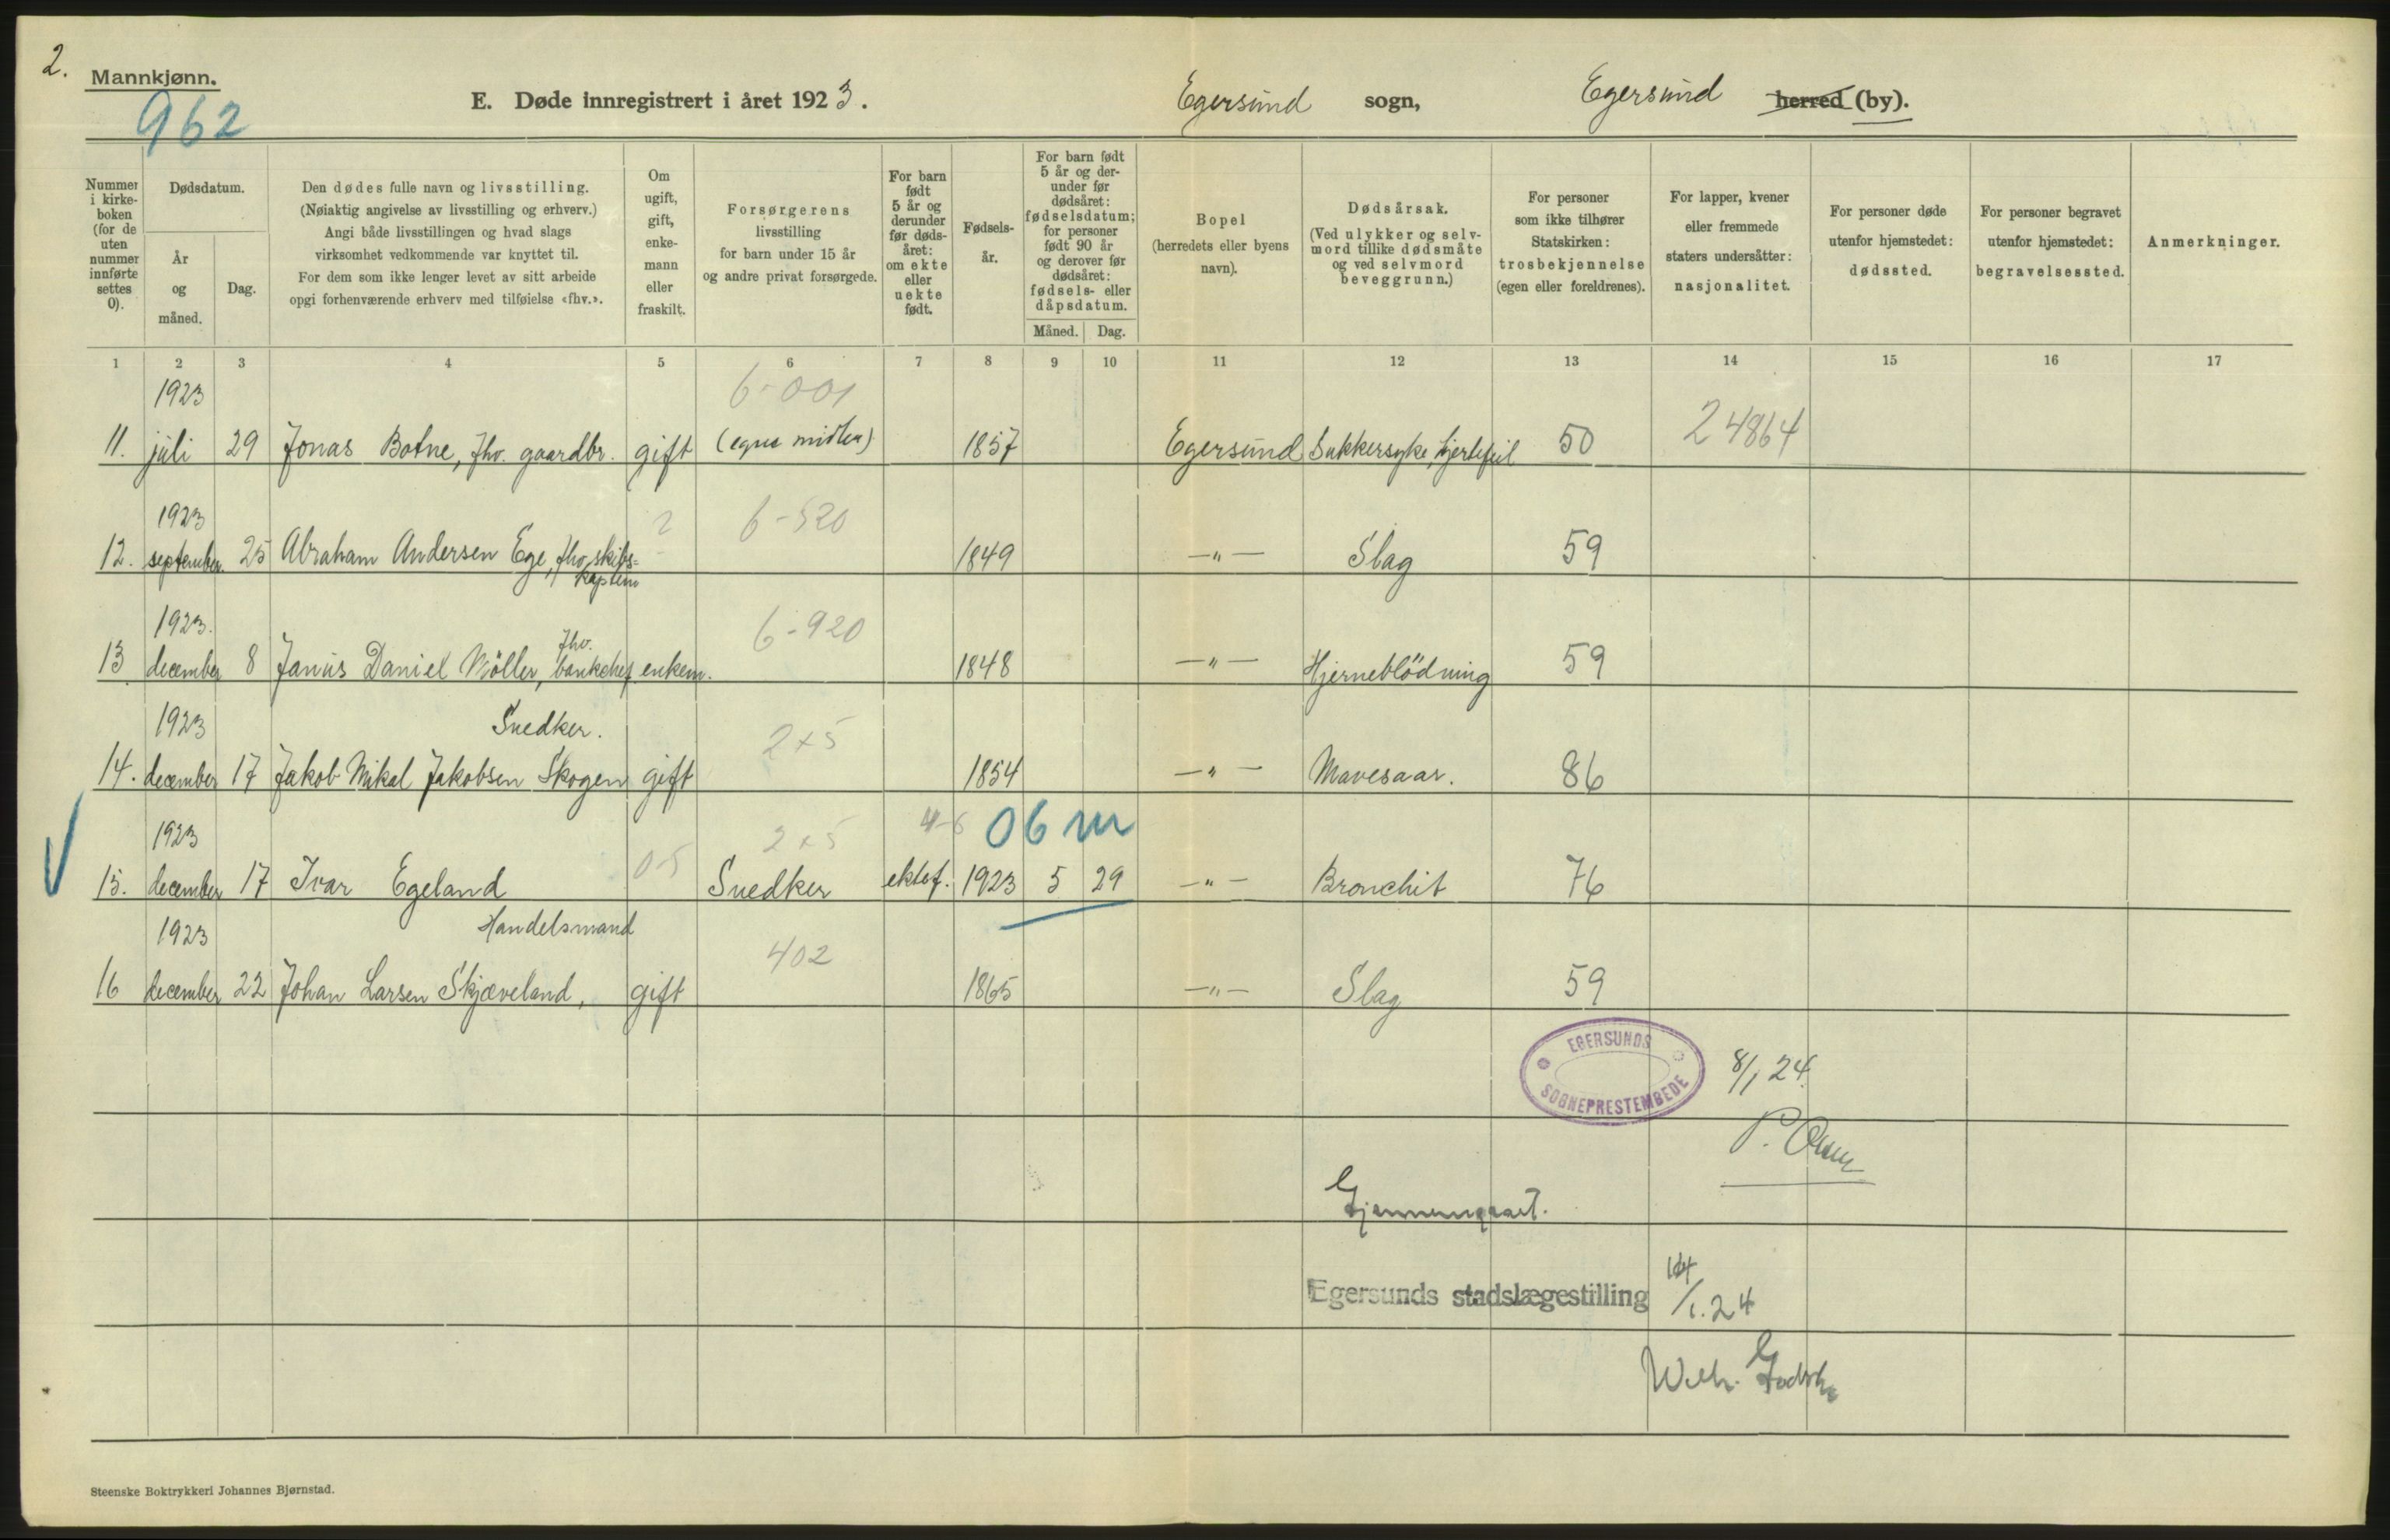 2.
Mannkjønn.
962
E. Døde innregistrert i året 1923. Egersund sogn, Egersund herred (by).
Nummer i kirkeboken (for de uten nummer innførte settes 0).
Dødsdatum.
År og måned.
Dag.
Den dødes fulle navn og livsstilling.
(Nøiaktig angivelse av livsstilling og erhverv.)
Angi både livsstillingen og hvad slags
virksomhet vedkommende var knyttet til.
For dem som ikke lenger levet av sitt arbeide
opgi forhenværende erhverv med tilføielse «fhv.».
Om ugift, gift, enkemann eller fraskilt.
Forsørgerens
livsstilling
for barn under 15 år
og andre privat forsørgede.
For barn født 5 år og derunder før dødsåret: om ekte eller uekte født.
Fødselsår.
For barn født 5 år og derunder før dødsåret: fødselsdatum; for personer født 90 år og derover før dødsåret: fødsels- eller dåpsdatum.
Måned. Dag.
Bopel
(herredets eller byens
navn).
Dødsårsak.
(Ved ulykker og selvmord tillike dødsmåte og ved selvmord beveggrunn.)
For personer
som ikke tilhører
Statskirken:
trosbekjennelse
(egen eller foreldrenes).
For lapper, kvener
eller fremmede
staters undersåtter:
nasjonalitet.
For personer døde
utenfor hjemstedet:
dødssted.
For personer begravet
utenfor hjemstedet:
begravelsessted.
Anmerkninger.
1 2 3 4 5 6 7 8 9 10 11 12 13 14 15 16 17
1923 6-001
11. juli 29 Jonas Botne, fhv. gaardbr. gift (egne midler) 1857 Egersund Sukkersyke, hjertefeil 50 24864
1923 ? 6-520
12. september 25 Abraham Andersen Ege, fhv. skibs= 1849 -"- Slag 59
kaptein
1923. fhv. 6-920
13 december 8 Janus Daniel Möller, bankchef enkem. 1848 -"- Hjerneblödning 59
1923 Snedker. 2x5
14. december 17 Jakob Mikal Jakobsen Skogen gift 1854 -"- Mavesaar. 86
1923 0-5 2x5 4-6 06 m
15. december 17 Ivar Egeland Snedker ektef. 1923 5 29 -"- Bronchit 76
1923 Handelsmand 402
16 december 22 Johan Larsen Skjæveland, gift 1865 -"- Slag 59
EGERSUNDS SOGNEPRESTEMBEDE
8/1 24.
Gjennemgaaet.
Egersunds stadslægestilling
/1.24
Wilh.
Steenske Boktrykkeri Johannes Bjørnstad.